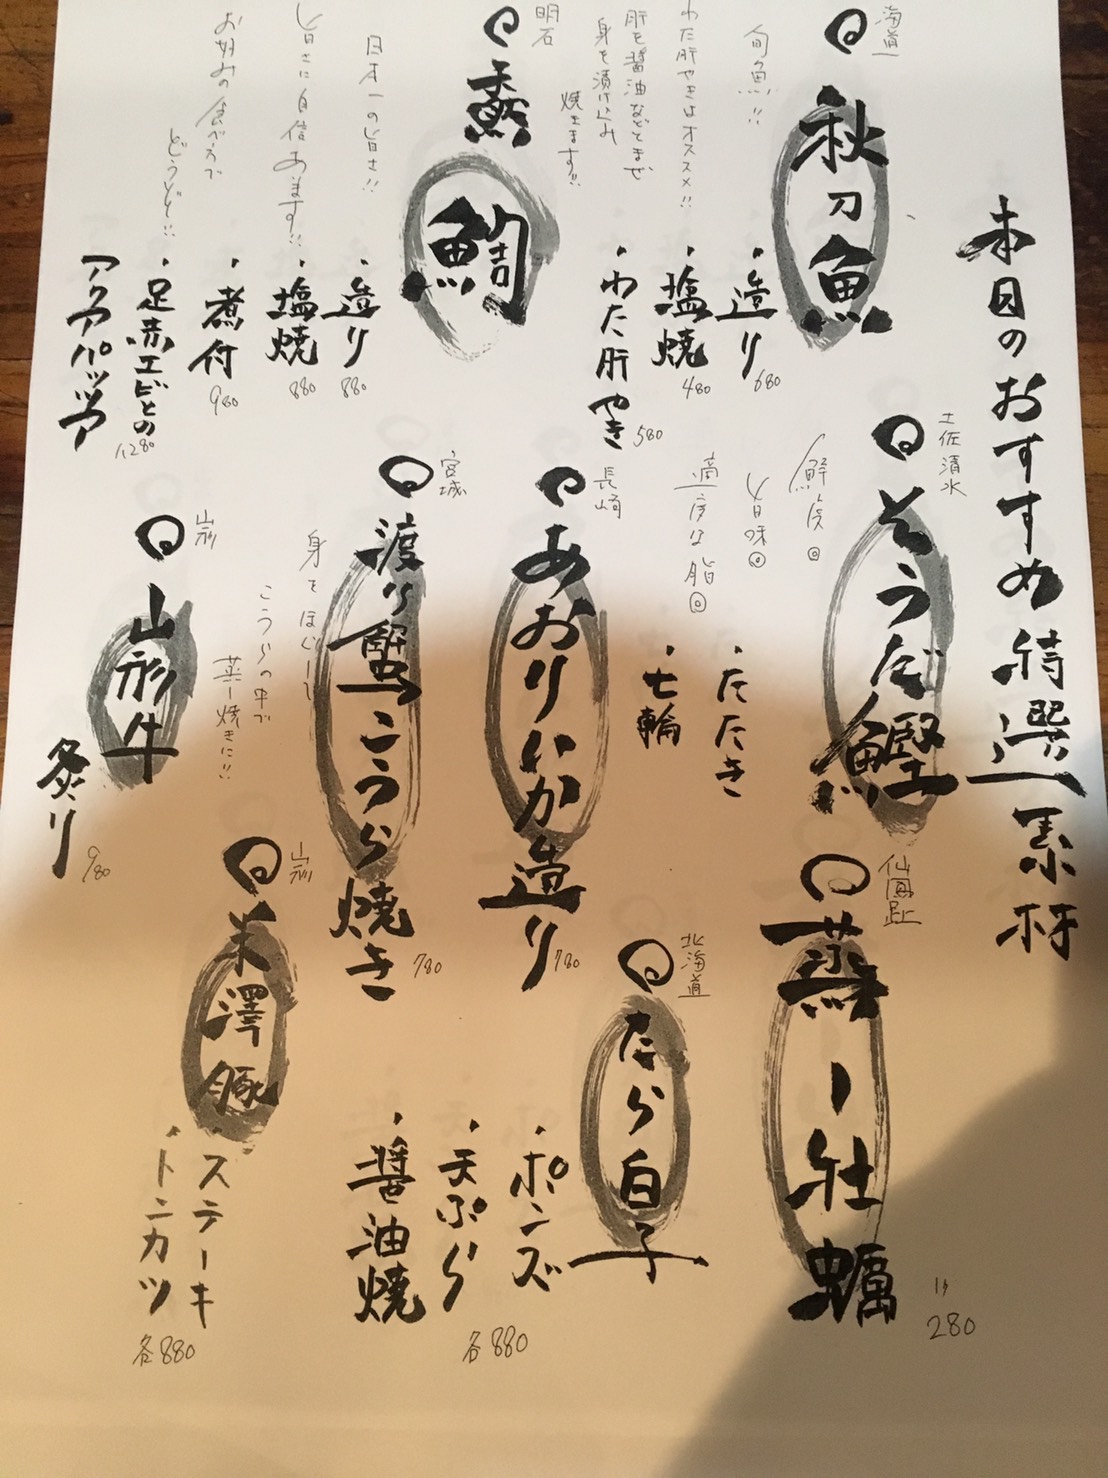 本日のおすすめ特選素材
海道
秋刀魚
旬魚!!
わた肝やきはオススメ!!
肝を醤油などとまぜ
身を漬け込み
焼きます!!
・造り 680
・塩焼 480
・わた肝やき 580
明石
真鯛
日本一の旨さ!!
旨さに自信あります!!
お好みの食べ方で
どうぞ!!
・造り 880
・塩焼 880
・煮付 980
・足赤エビとの
アクアパッツァ 1,280
土佐清水
そうだ鰹
鮮度◎
旨味◎
適度な脂◎
・たたき
・七輪
長崎
あおりいか造り 780
宮城
渡り蟹こうら焼き 780
身をほぐして
こうらの中で
蒸し焼きに!!
山形
山形牛
炙り 980
仙鳳趾
蒸し牡蠣
1ヶ
280
北海道
たら白子
・ポンズ
・天ぷら
・醤油焼
各880
山形
米澤豚
・ステーキ
・トンカツ
各880